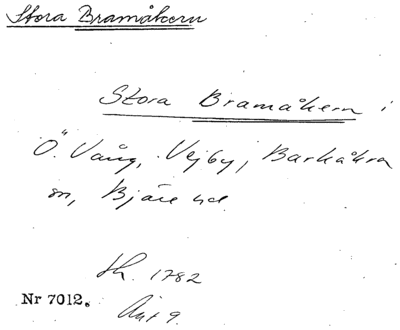 Stora Bramåkern
Stora Bramåkern i
Ö. Vång, Vejby, Barkåkra
sn, Bjäre hd
Sk. 1782
Nr 7012.
Akt 9.